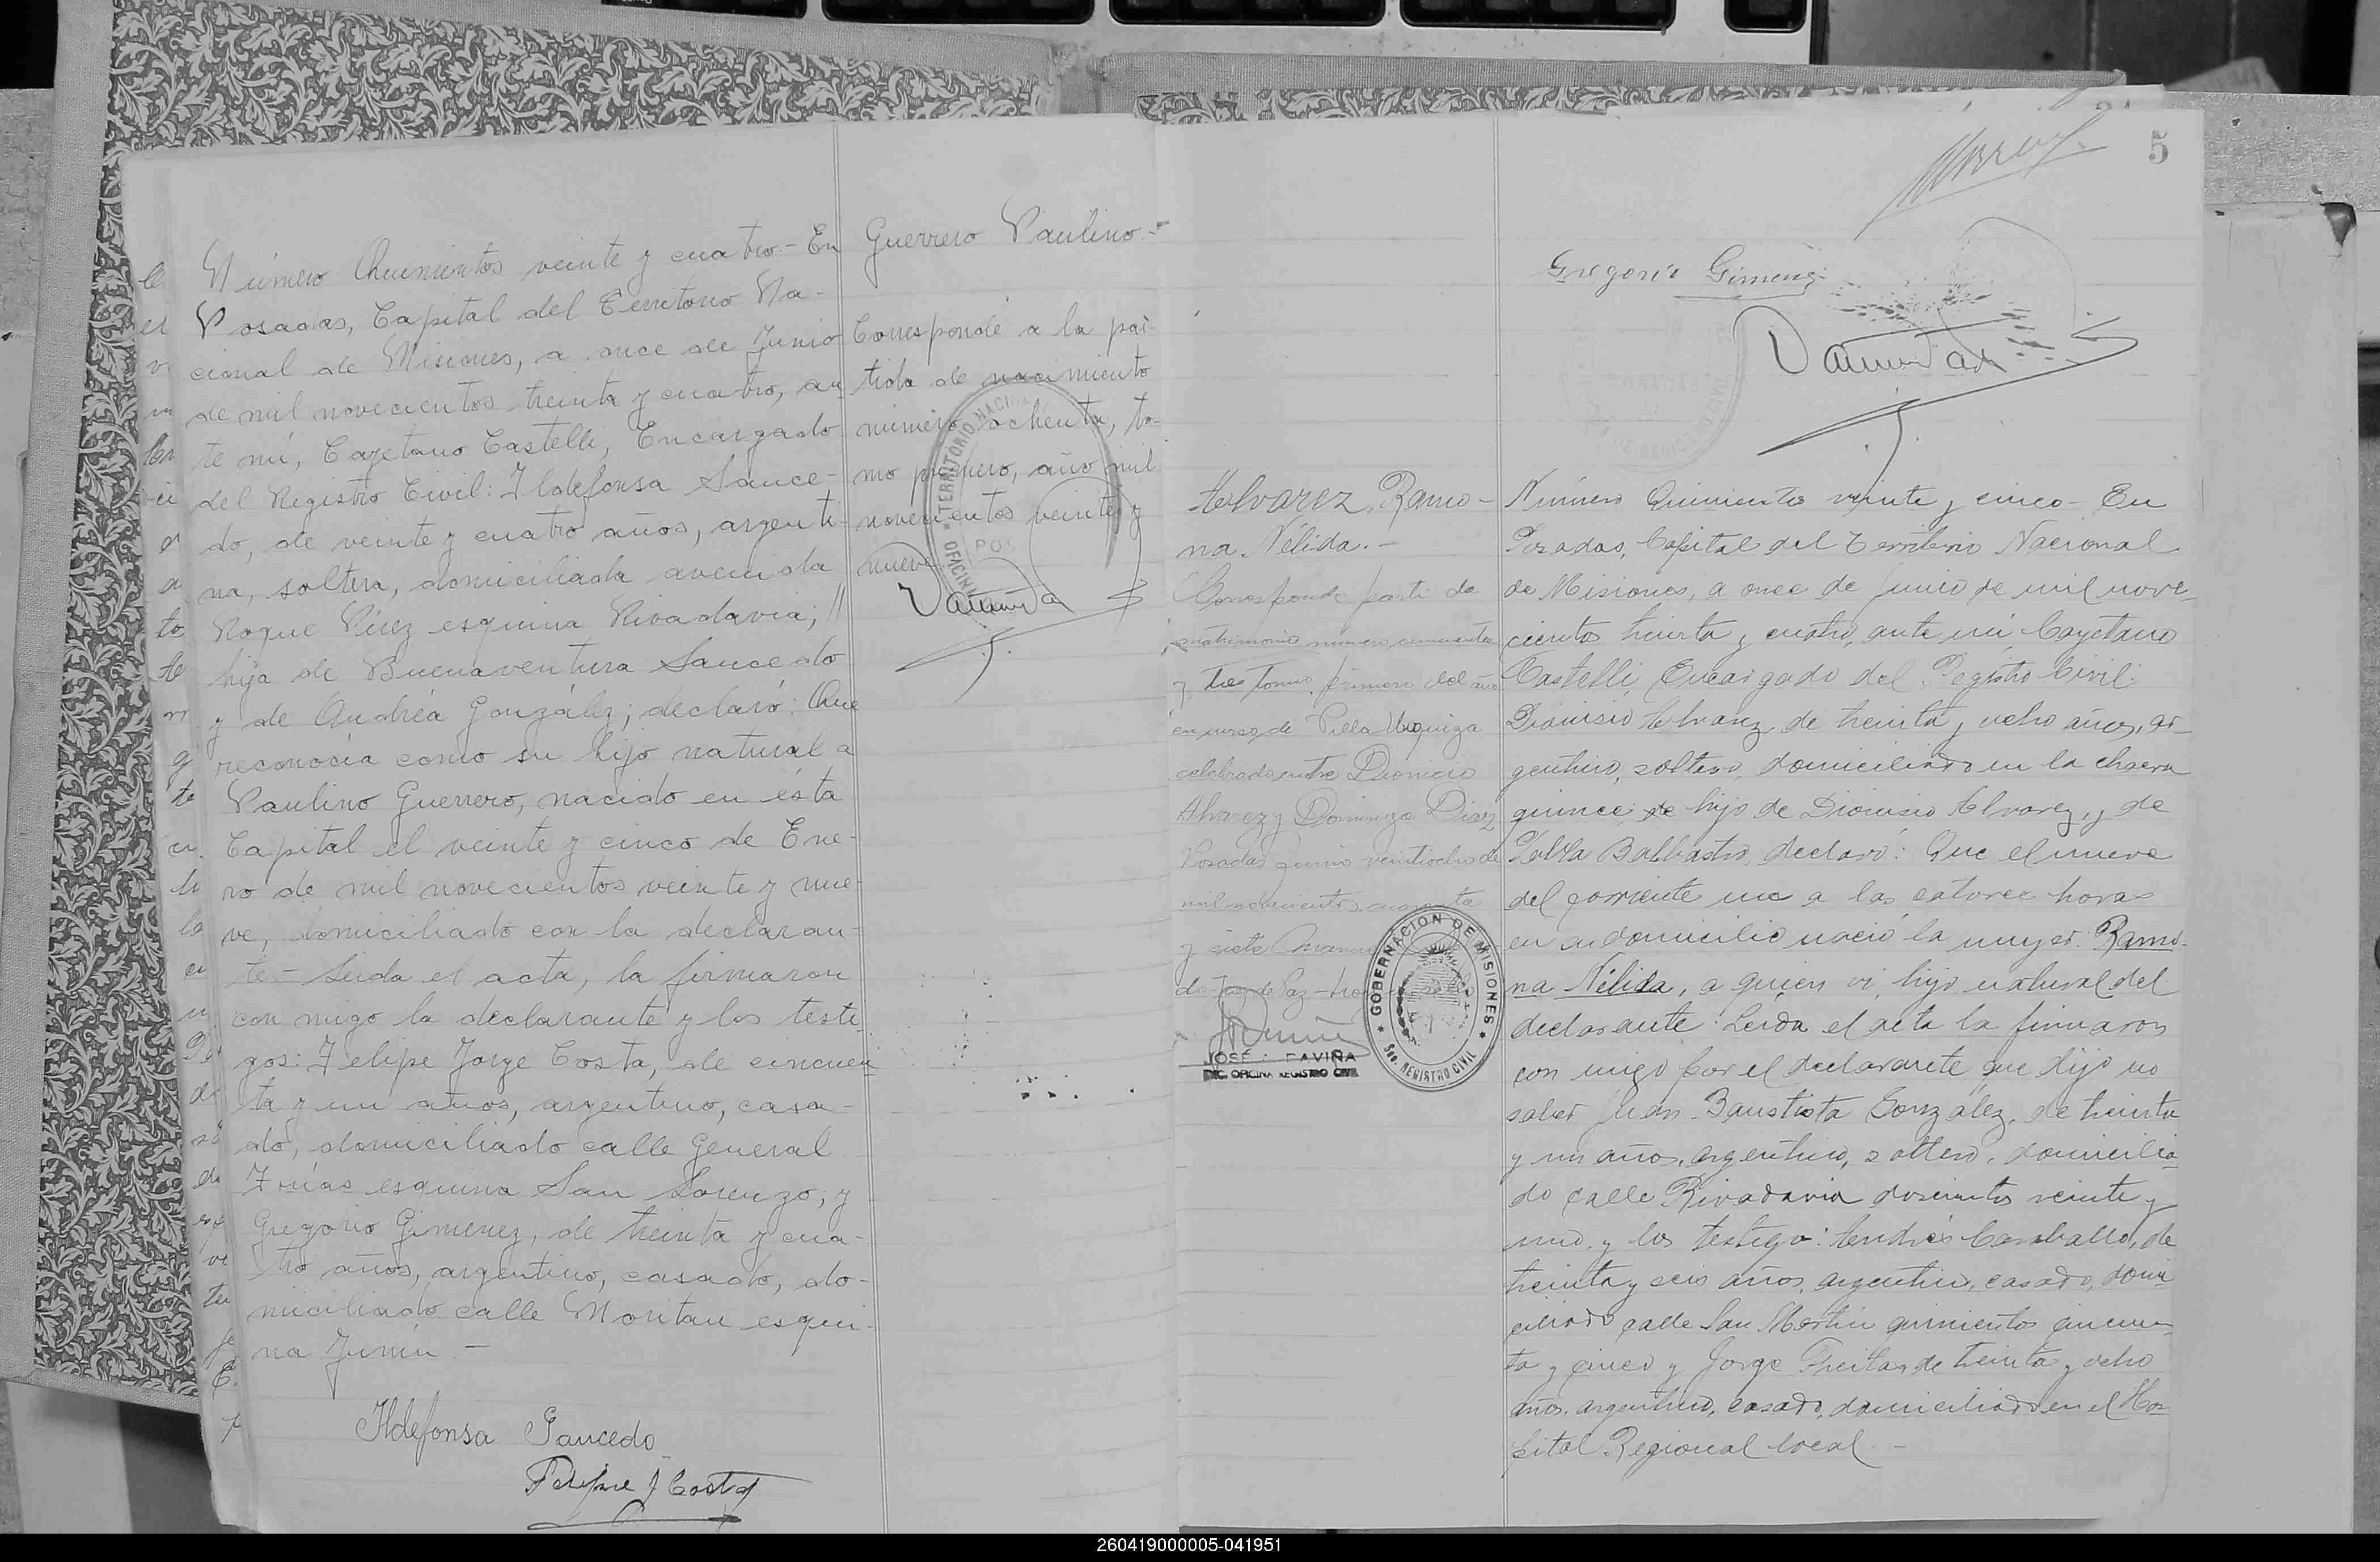 Número Quinientos veinte y cuatro.- En
Posadas, Capital del Territorio Na-
cional de Misiones, a once de Junio
de mil novecientos treinta y cuatro, an-
te mí, Cayetano Castelli, Encargado
del Registro Civil: Ildefonsa Sauce-
do, de veinte y cuatro años, argenti-
na, soltera, domiciliada avenida
Roque Pérez esquina Rivadavia; //
hija de Buenaventura Saucedo
y de Andréa González; declaró: Que
reconocía como su hijo natural a
Paulino Guerrero, nacido en ésta
Capital el veinte y cinco de Ene-
ro de mil novecientos veinte y nue-
ve, domiciliado con la declaran-
te.- Leida el acta, la firmaron
con migo la declarante y los testi-
gos: Felipe Jorge Costa, de cincuen-
ta y un años, argentino, casa-
do, domiciliado calle General
Frías esquina San Lorenzo; y
Gregorio Gimenez, de treinta y cua-
tro años, argentino, casado, do-
miciliado calle Moritan esqui-
na Junín.-
Ildefonsa Saucedo
Felipe J Costa
Guerrero Paulino.-
Corresponde a la par-
tida de nacimiento
número ochenta, to-
mo primero, año mil
novecientos veinte y
nueve
TERRITORIO NACION
OFICINA
POS
5
Gregorio Gimenez
POSADAS
DE REGISTRO
Alvarez, Ramo-
na Nélida.-
Corresponde parti de
matrimonio número cincuenta
y tres Tomo primero del año
en curso, de Villa Urquiza
celebrado entre Dionicio
Alvarez y Dominga Diaz
Posadas junio veintiocho de
mil novecientos cuarenta
y siete
do Juez de Paz
JOSÉ DAVIÑA
ENC. OFICINA REGISTRO CIVIL
GOBERNACION DE MISIONES
Sec. REGISTRO CIVIL
Número Quinientos veinte y cinco- En
Posadas, Capital del Territorio Nacional
de Misiones, a once de Junio de mil nove-
cientos treinta y cuatro, ante mí Cayetano
Castelli, Encargado del Registro Civil:
Dionisio Alvarez, de treinta y ocho años, ar-
gentino, soltero, domiciliado en la chacra
quince de hijo de Dionisio Alvarez, y de
Pabla Balbastro, declaró: Que el nueve
del corriente mes a las catorce horas
en su domicilio nació la mujer: Ramo-
na Nélida, a quien vi, hija natural del
declarante. Leída el acta la firmaron
con migo por el declarante que dijo no
saber Juan Bautista González, de treinta
y un años, argentino, soltero, domicilia-
do calle Rivadavia doscientos veinte y
uno, y los testigos: Andrés Caraballo, de
treinta y seis años, argentino, casado, domi-
ciliado calle San Martín quinientos cincuen-
ta y cinco y Jorge Freitas de treinta y ocho
años, argentino, casado, domiciliado en el Hos-
pital Regional local.-
260419000005-041951